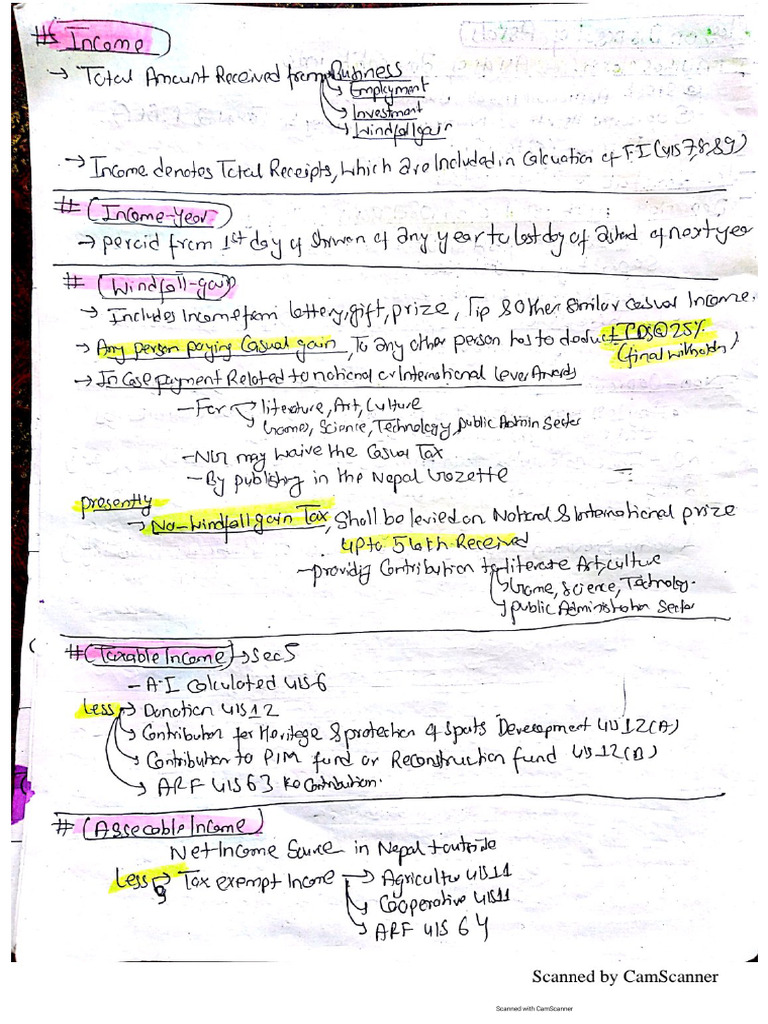 # Income
→ Total Amount Received from Business
→ Employment
→ Investment
→ Windfall gain
→ Income denotes Total Receipts, which are Included in Calcuation of T.I (U/S 7,8,89)
# Income-year
→ period from 1st day of Shrwan of any year to last day of ashad of next year
# Windfall-gain
→ Includes Income from lottery, gift, prize, Tip & Other Similar Casual Income.
→ Any person paying Casual gain, To any other person has to deduct TDS@25%
(final withholdn)
→ In Case payment Related to national or International Lever Awards
- For → literature, Art, Culture
Games, Science, Technology, public Admin Sector
- NG may waive the Casual Tax
- By publishing in the Nepal Gozette
presently
→ No-windfall gain Tax, Shall be levied on National & International prize
up to 5 lakh Received
- providig Contribution to literate Art, culture
→ Game, Science, Technology.
→ public Administration Sector
# Taxable Income → Sec 5
- A.I Calculated U/S 6
Less → Donation U/S 12
→ Contribution for Heritage & protection of sports Development U/S 12(A)
→ Contribution to P/M fund or Reconstruction fund U/S 12(B)
→ ARF U/S 63 ko Contribution.
# Assecable Income
Net Income Source in Nepal + outside
Less → Tax exempt Income → Agricultur U/S 11
→ Cooperative U/S 11
→ ARF U/S 64
Scanned by CamScanner
Scanned with CamScanner